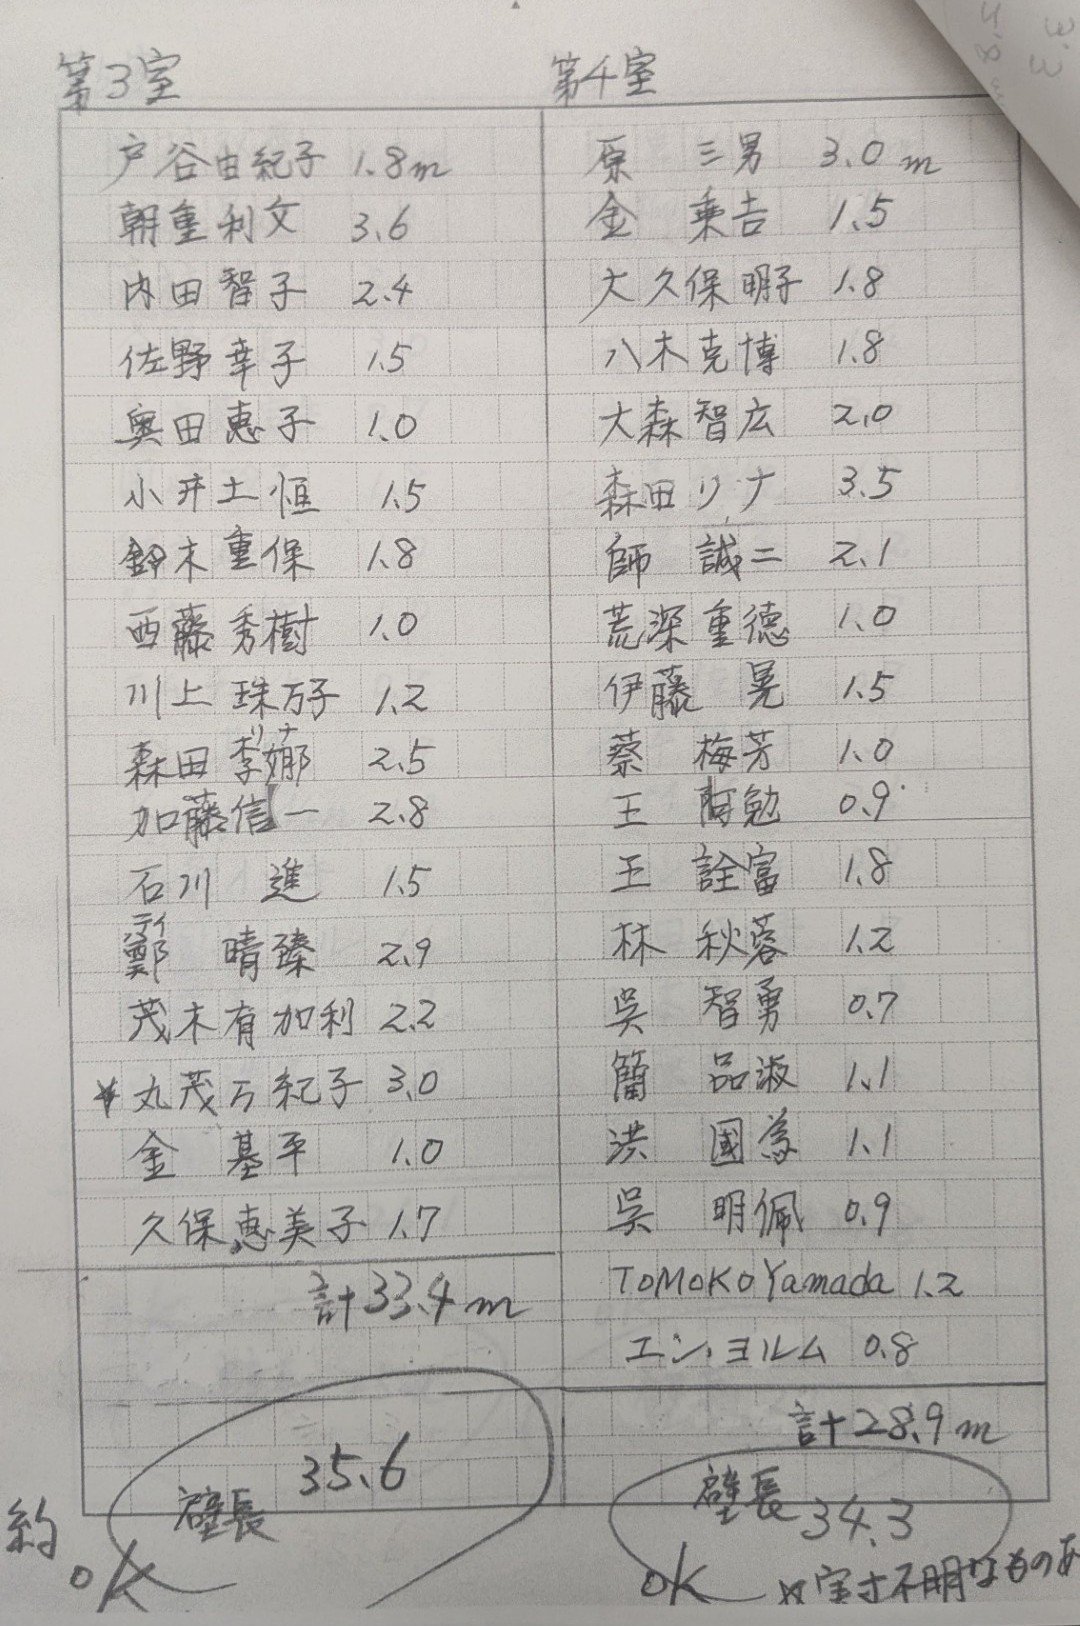 第3室
戸谷由紀子 1.8m
朝重利文 3.6
内田智子 2.4
佐野幸子 1.5
奥田恵子 1.0
小井土恒 1.5
鈴木重保 1.8
西藤秀樹 1.0
川上珠万子 1.2
リナ
森田李娜 2.5
加藤信一 2.8
石川 進 1.5
テイ
鄭 晴臻 2.9
茂木有加利 2.2
丸茂万紀子 3.0
金 基平 1.0
久保恵美子 1.7
計33.4m
壁長 35.6
約
OK
第4室
原 三男 3.0m
金 乗吉 1.5
大久保明子 1.8
八木克博 1.8
大森智広 2.0
森田リナ 3.5
師 誠二 2.1
荒深重徳 1.0
伊藤 晃 1.5
蔡 梅芳 1.0
王 阿勉 0.9
王 詮富 1.8
林 秋蓉 1.2
吳 智勇 0.7
簡 品淑 1.1
洪 國為 1.1
吳 明佩 0.9
TOMOKO Yamada 1.2
エン・ヨルム 0.8
計28.9m
壁長 34.3
OK 実寸不明なものあ